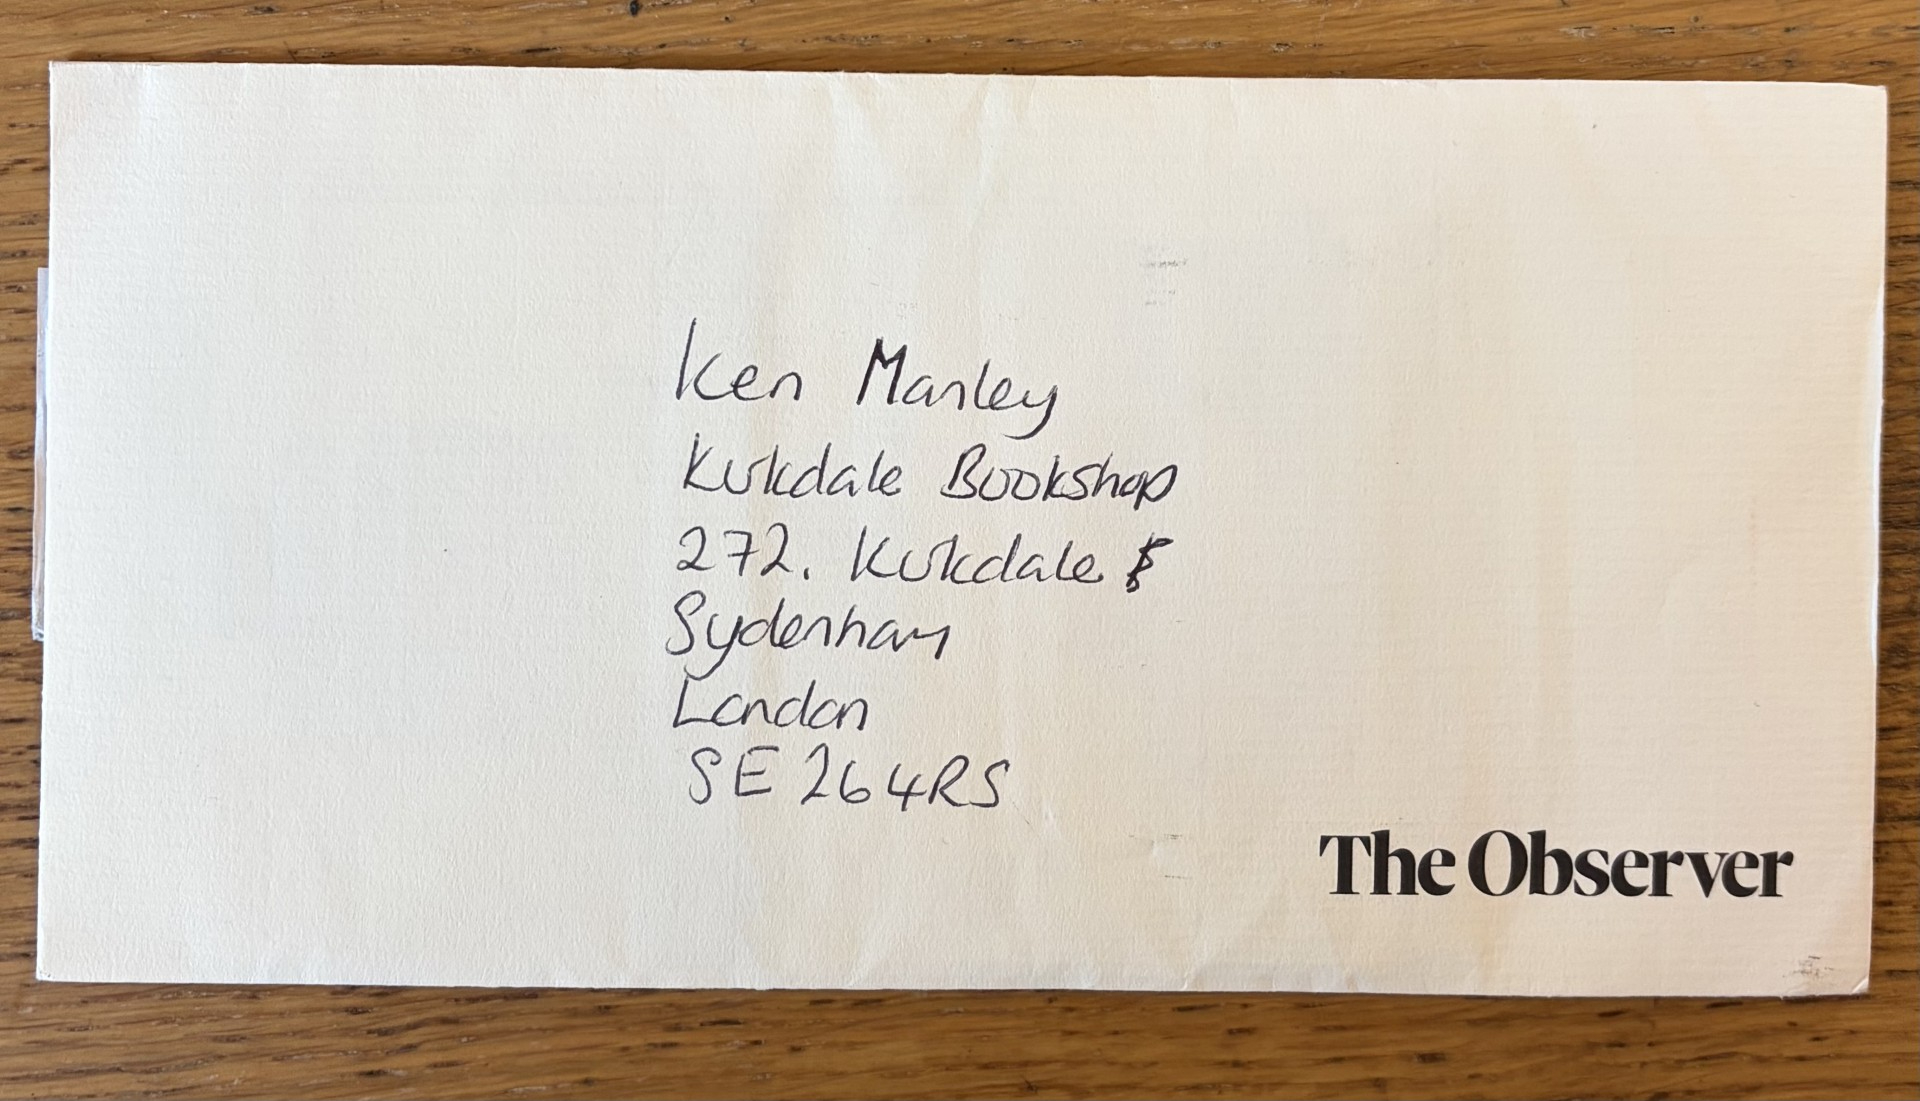 Ken Manley
Kirkdale Bookshop
272. Kirkdale
Sydenham
London
SE26 4RS
The Observer